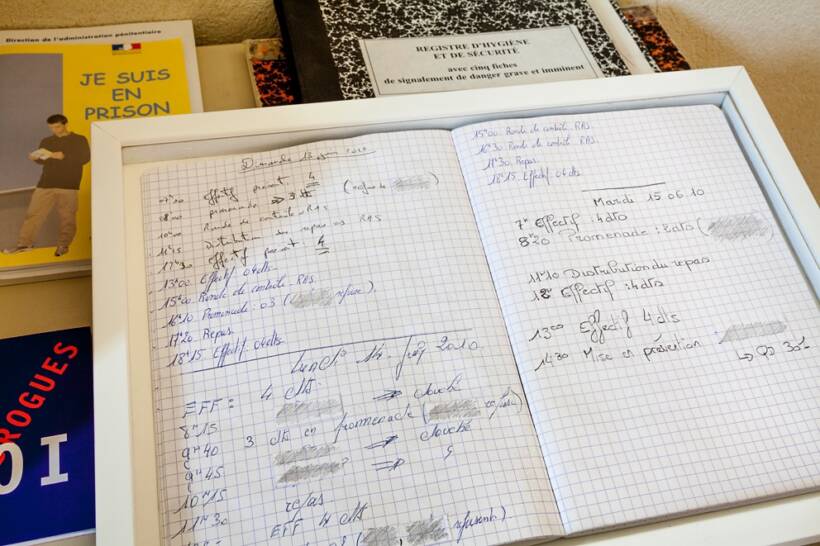 Direction de l'administration pénitentiaire
JE SUIS
EN
PRISON
REGISTRE D'HYGIÈNE
ET DE SÉCURITÉ
avec cinq fiches
de signalement de danger grave et imminent
ROGUES
OI
Dimanche 13 2010
07h10 effectif présent : 4
08h00 promenade => 3 dts (refus de
10h00 Ronde de contrôle RAS
11h45 Distribution des repas RAS
12h30 effectif présent : 4
13h00 Effectif 04dts
15h00 Ronde de contrôle. RAS.
16h10 Promenade : 03 ( refuse).
17h20 Repas.
18h15 Effectif 04dts
Lundi 14 2010
EFF = 4 dts
8h15 => douché
9h40 3 dts en promenade (
9h45 => douché
10h15 =>
11h30 repas
EFF 4 dts
refusent)
15h00 Ronde de contrôle. RAS.
16h30 Ronde de contrôle. RAS.
17h30 Repas.
18h15. Effectif. 04dts
Mardi 15 06.10
7h Effectif : 4dts
8h20 Promenade : 2dts (
11h10 Distribution du repas
12h Effectif : 4dts
13h00 Effectif 4dts
14h30 Mise en prévention
↳ QD 301